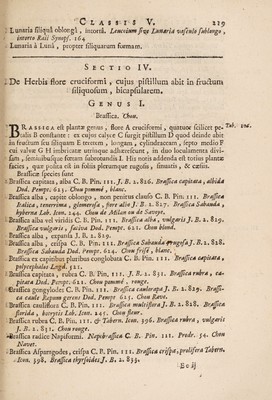 CLASSIS V. 219
Lunaria siliquâ oblongâ, intortâ. Leucoium sive Lunaria vasculo sublongo,
intorto Raii Synops. 164
Lunaria à Lunâ, propter siliquarum formam.
SECTIO IV.
De Herbis flore cruciformi, cujus pistillum abit in fructum
siliquosum, bicapsularem.
GENUS I.
Brassica. Chou.
BRASSICA est plantæ genus, flore A cruciformi, quatuor scilicet pe-
talis B constante: ex cujus calyce C surgit pistillum D quod deinde abit
in fructum seu siliquam E teretem, longam, cylindraceam, septo medio F
cui valvæ G H imbricatæ utrinque adhærescunt, in duo loculamenta divi-
sam, seminibusque fœtam subrotundis I. His notis addenda est totius plantæ
facies, quæ posita est in foliis plerumque rugosis, sinuatis, & cæsiis.
Brassicæ species sunt
Brassica capitata, alba C. B. Pin. 111. J. B. 2. 826. Brassica capitata, albida
Dod. Pempt. 623. Chou pommé, blanc.
Brassica alba, capite oblongo, non penitus clauso C. B. Pin. 111. Brassica
Italica, tenerrima, glomerosa, flore albo J. B. 2. 827. Brassica Sabauda,
hyberna Lob. Icon. 244. Chou de Milan ou de Savoye.
Brassica alba vel viridis C. B. Pin. 111. Brassica alba, vulgaris J. B. 2. 829.
Brassica vulgaris, sativa Dod. Pempt. 621. Chou blond.
Brassica alba, expansa J. B. 2. 829.
Brassica alba, crispa C. B. Pin. 111. Brassica Sabauda rugosa J. B. 2. 828.
Brassica Sabauda Dod. Pempt. 624. Chou frisé, blanc.
Brassica ex capitibus pluribus conglobata C. B. Pin. 111. Brassica capitata,
polycephalos Lugd. 521.
Brassica capitata, rubra C. B. Pin. 111. J. B. 2. 831. Brassica rubra, ca-
pitata Dod. Pempt. 621. Chou pommé, rouge.
Brassica gongylodes C. B. Pin. 111. Brassica caulorapa J. B. 2. 829. Brassi-
ca caule Rapum gerens Dod. Pempt. 625. Chou Rave.
Brassica cauliflora C. B. Pin. 111. Brassica multiflora J. B. 2. 828. Brassica
florida, botrytis Lob. Icon. 245. Chou fleur.
Brassica rubra C. B. Pin. 111. & Tabern. Icon. 396. Brassica rubra, vulgaris
J. B. 2. 831. Chou rouge.
Brassica radice Napiformi. Napobrassica C. B. Pin. 111. Prodr. 54. Chou
Navet.
Brassica Asparagodes, crispa C. B. Pin. 111. Brassica crispa, prolifera Tabern.
Icon. 398. Brassica thyrsoides J. B. 2. 833.
Ee ij